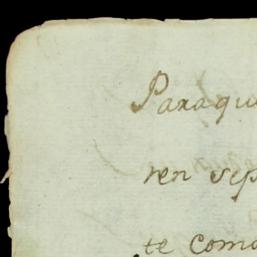 Paraqu
ren sep
te como